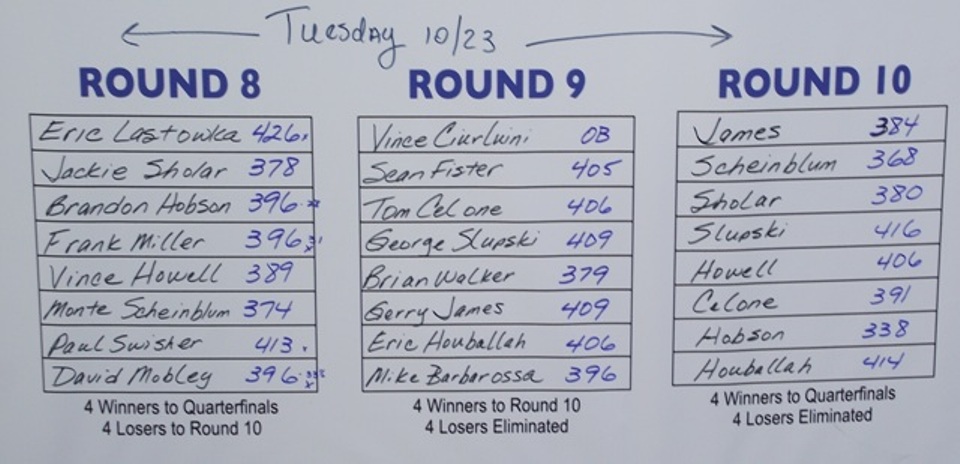 Tuesday 10/23
ROUND 8
Eric Lastowka 426
Jackie Sholar 378
Brandon Hobson 396
Frank Miller 396
Vince Howell 389
Monte Scheinblum 374
Paul Swisher 413
David Mobley 396
4 Winners to Quarterfinals
4 Losers to Round 10
ROUND 9
Vince Ciurluini OB
Sean Fister 405
Tom Celone 406
George Slupski 409
Brian Walker 379
Gerry James 409
Eric Houballah 406
Mike Barbarossa 396
4 Winners to Round 10
4 Losers Eliminated
ROUND 10
James 384
Scheinblum 368
Sholar 380
Slupski 416
Howell 406
Celone 391
Hobson 338
Houballah 414
4 Winners to Quarterfinals
4 Losers Eliminated